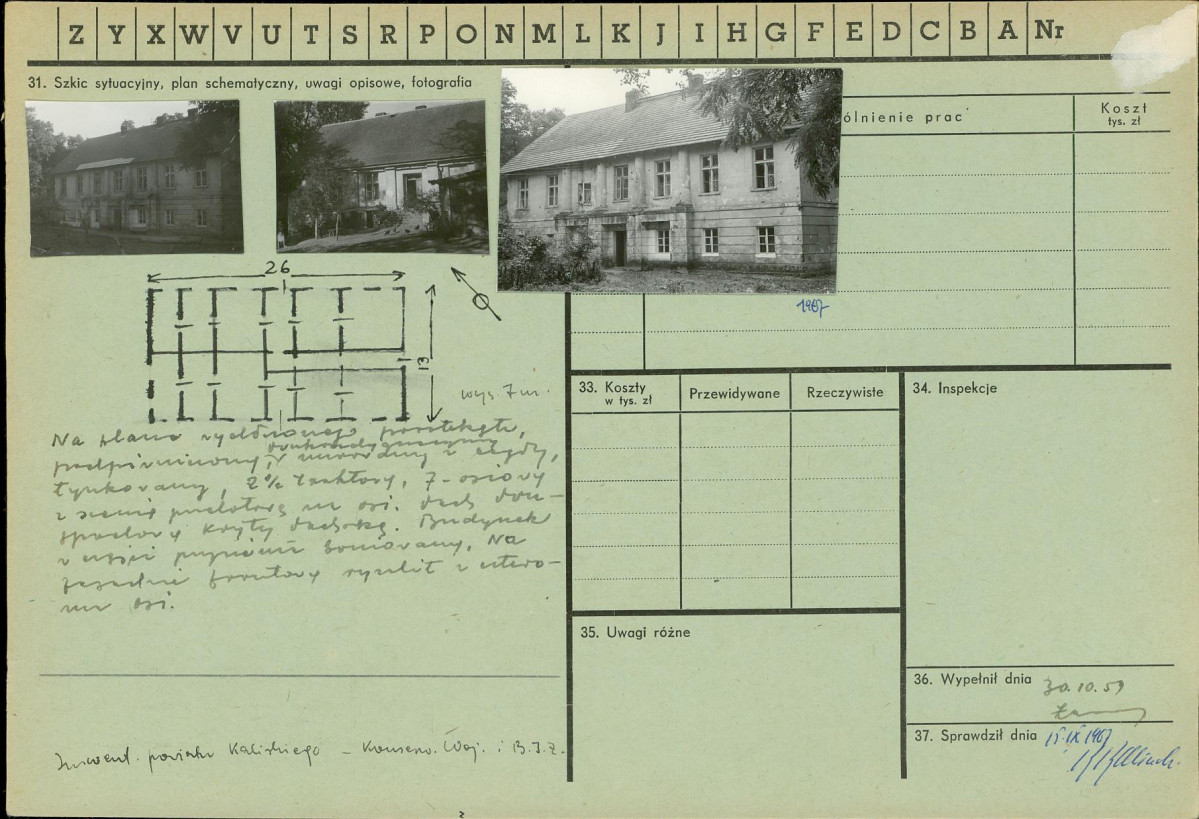 Z Y X W V U T S R P O N M L K J I H G F E D C B A Nr
31. Szkic sytuacyjny, plan schematyczny, uwagi opisowe, fotografia
ólnienie prac
Koszt
tys. zł
1967
26
13
wys 7 m.
Na planie wydłużonego prostokąta,
podpiwniczony, murowany z cegły,
tynkowany, 2½ traktowy, 7-osiowy
z sienią przelotową na osi. Dach dwu-
spadowy kryty dachówką. Budynek
w części przyziemia boniowany. Na
fasadzie frontowej ryzalit
na osi.
Inwent. powiatu Kaliskiego – Konserw. Woj. i B.I.Z.
33. Koszty
w tys. zł
Przewidywane
Rzeczywiste
34. Inspekcje
35. Uwagi różne
36. Wypełnił dnia 30.10.59
37. Sprawdził dnia 15.IX 1967